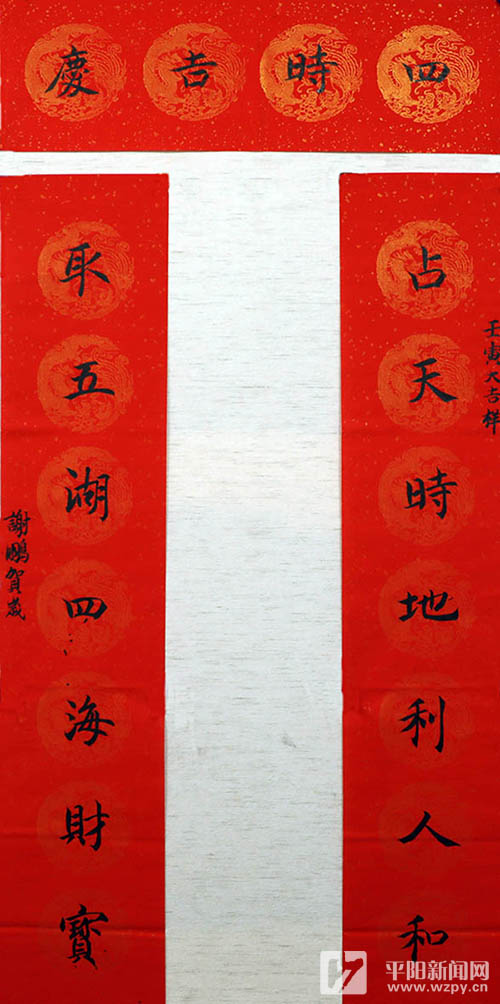 四時吉慶
占天時地利人和
取五湖四海財寶
壬寅大吉祥
謝鵬賀歲
平阳新闻网
www.wzpy.cn